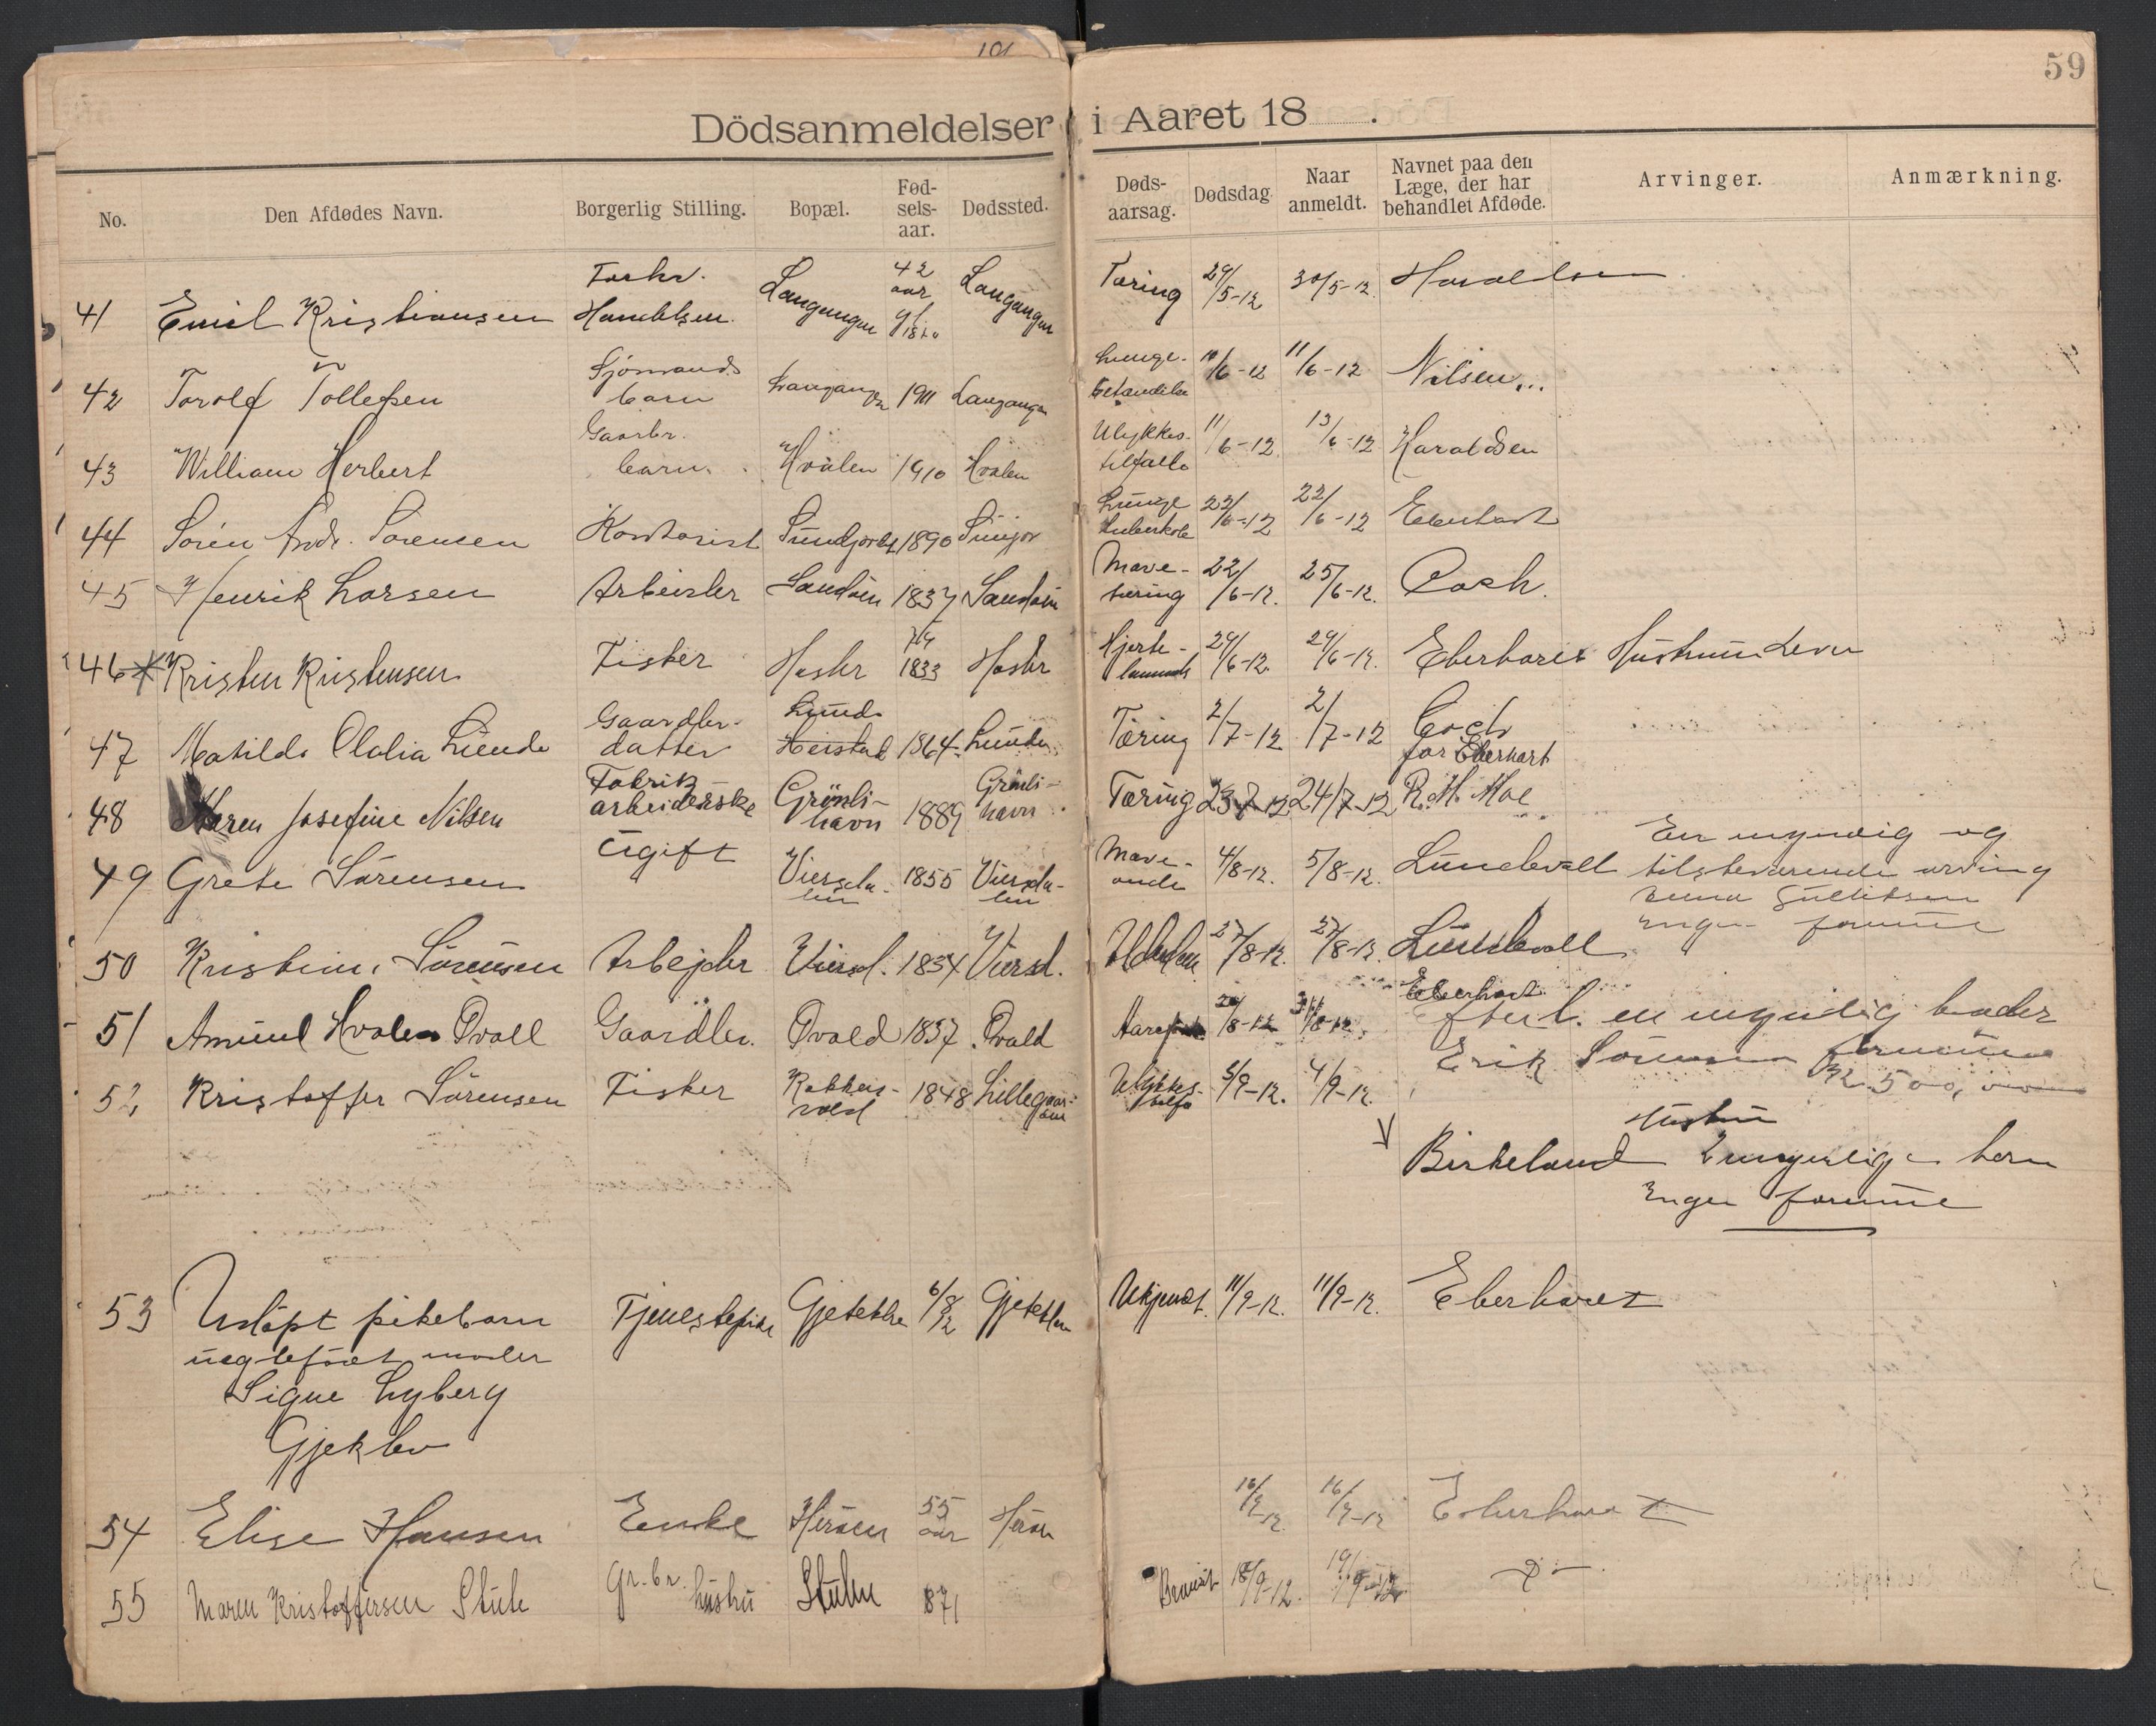 101
59
Dödsanmeldelser i Aaret 18 .
No. Den Afdødes Navn. Borgerlig Stilling. Bopæl. Fød-sels-aar. Dødssted. Døds-aarsag. Dødsdag. Naar anmeldt. Navnet paa den Læge, der har behandlet Afdøde. Arvinger. Anmærkning.
41 Emil Kristiansen Langangen 42 aar Langangen Tæring 29/5-12 30/5-12 Haraldsen
42 Torolf Tollefsen Sjömands barn Langangen 1911 Langangen Lunge- betændelse 10/6-12 11/6-12 Nilsen
43 William Herbert Gaarbr. barn Hvalen 1910 Hvalen Ulykkes- tilfælle 11/6-12 13/6-12 Haraldsen
44 Sören Andr. Sörensen Kontorist 1890 Lunge tuberkole 22/6-12 22/6-12 Eberhart
45 Henrik Larsen Arbeider Sandöen 1837 Sandöen Mave- tæring 22/6-12. 25/6-12. Coch.
46 Kristen Kristensen Fisker 1833 Hjerte- lammels 29/6-12 29/6-12. Eberhardt Hustruen Lever
47 Matilde Olalia Lunde Gaardbr. datter Lunde Heistad 1864 Lunde Tæring 2/7-12 2/7-12 Coch for Eberhart
48 Karen Josefine Nilsen Fabrik- arbeiderske Grönli- havn 1889 Grönli- havn Tæring 23/7 12 24/7-12 R. M. Moe
49 Grete Sörensen Ugift Viersda- len 1855 Viersda- len Mave- onde 4/8-12. 5/8-12. Lundevall En myndig og tilstedværende arving Gulliksen Ingen formue
50 Kristine Sörensen Arbejder Viersd. 1834 Viersd. 27/8-12. 27/8-12. Lundevall
51 Amund Hvalen Ovall Gaardbr. Ovald 1837 Ovald 8-12 8-12 Eberhart Efterl. en myndig broder Erik Sörensen formue Kr 500,
52 Kristoffer Sörensen Fisker 1848 Ulykkes- tilfæ 3/9-12. 4/9-12. Birkeland Hustru 2 myndige born Ingen formue
53 Udöpt pikebarn uegtefödt moder Signe Lyberg Gjeklev Tjenestepike 6/8 12 Ukjendt. 11/9-12. 11/9-12. Eberhardt
54 Elise Hansen Enke Heröen 55 aar Heröen 16/9-12 16/9-12 Eberhardt
55 Maren Kristoffersen Stule Gr.br. hustru Stulen 871 18/9-12. 19/9-12